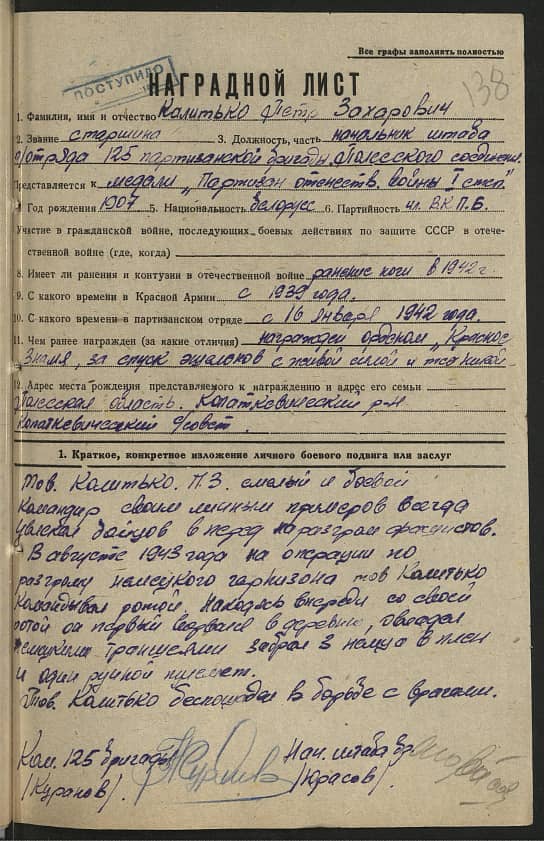 Все графы заполнять полностью
138
ПОСТУПИЛО
НАГРАДНОЙ ЛИСТ
1. Фамилия, имя и отчество Калитько Петр Захарович
2. Звание старшина 3. Должность, часть начальник штаба
отряда 125 партизанской бригады Полесского соединен.
Представляется к медали „Партизан отечеств. войны I степ"
4. Год рождения 1907 5. Национальность белорус 6. Партийность чл. ВКП.Б.
Участие в гражданской войне, последующих боевых действиях по защите СССР в отече-
ственной войне (где, когда)
8. Имеет ли ранения и контузии в отечественной войне ранение ноги в 1942 г.
9. С какого времени в Красной Армии с 1939 года.
10. С какого времени в партизанском отряде с 16 января 1942 года.
11. Чем ранее награжден (за какие отличия) награжден орденом „Красное
Знамя, за спуск эшелонов с живой силой и техникой
12. Адрес места рождения представляемого к награждению и адрес его семьи
Полесская область. Копаткевический р-н
Копаткевический с/совет.
1. Краткое, конкретное изложение личного боевого подвига или заслуг
Тов. Калитько. П.З. смелый и боевой
командир своим личным примеров всегда
увлекал бойцов в перед на разгром фашистов.
В августе 1943 года на операции по
разгрому немецкого гарнизона тов Калитько
командывал ротой. Находясь впереди со своей
ротой он первый ворвался в деревню, овладел
немецкими траншеями забрал 3 немца в плен
и один ручной пулемет.
Тов. Калитько беспощаден в борьбе с врагами.
Ком. 125 бригады Нач. штаба бр.
/Куранов/ /Юрасов/